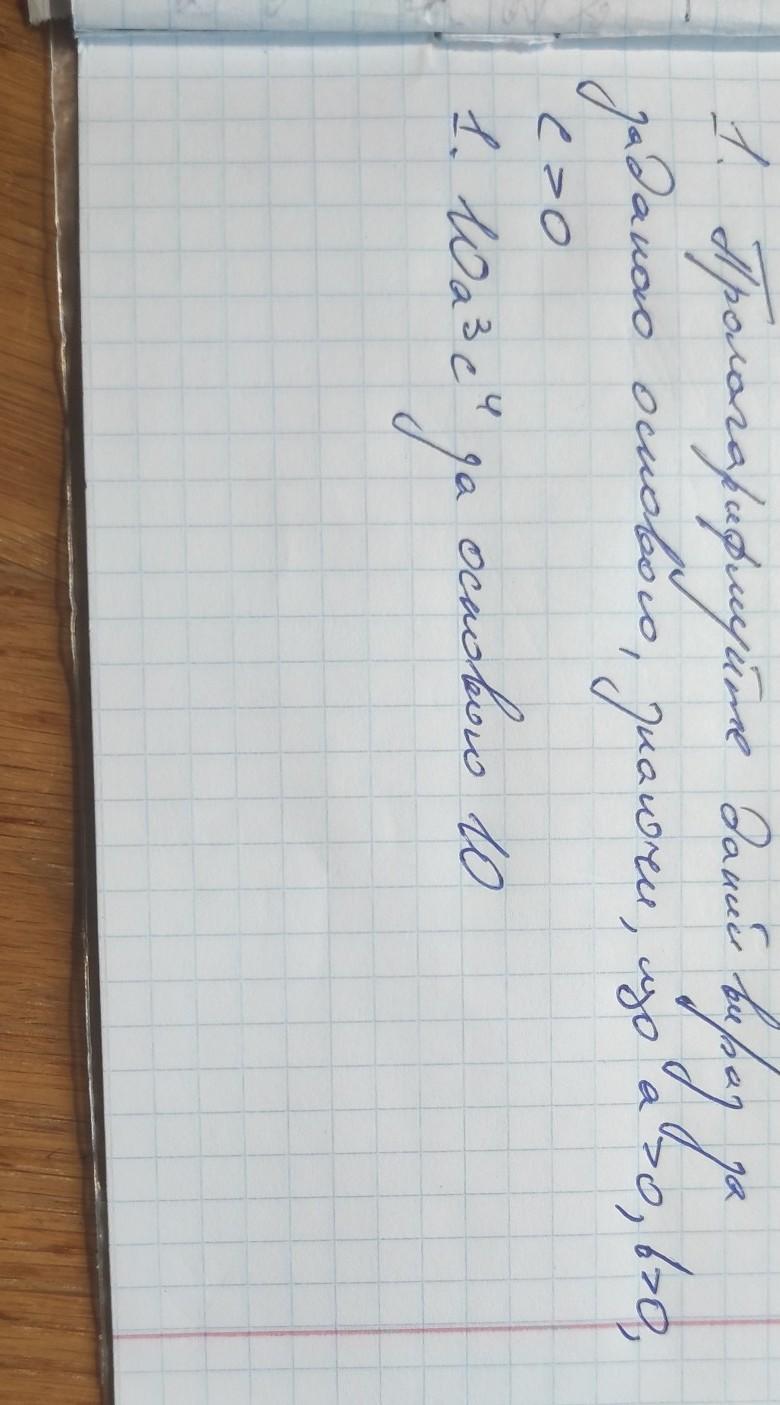 1. Прологарифмуйте даний вираз за
заданою основою, знаючи, що a>0, b>0,
c>0
1. 10a³c⁴ за основою 10